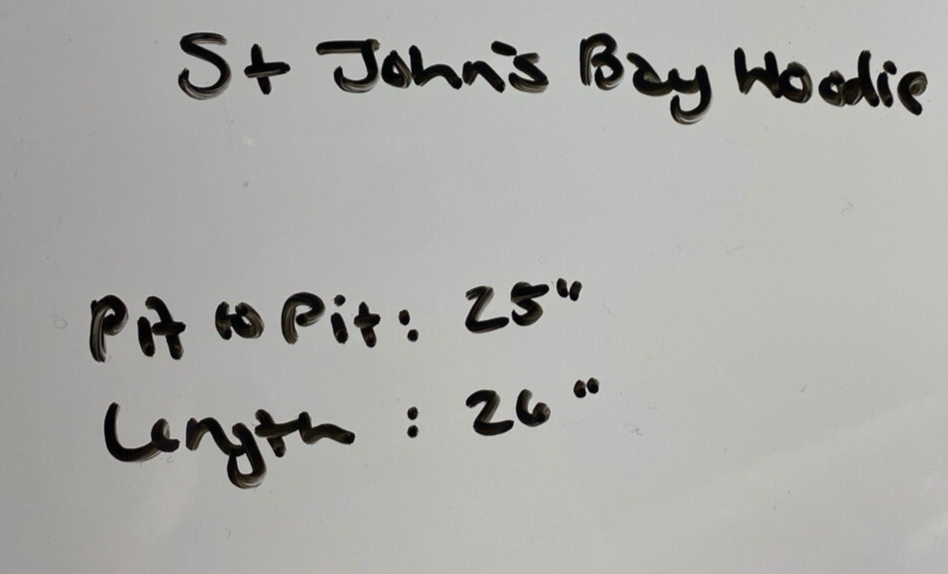 St John's Bay Hoodie
Pit to Pit: 25"
Length : 26"